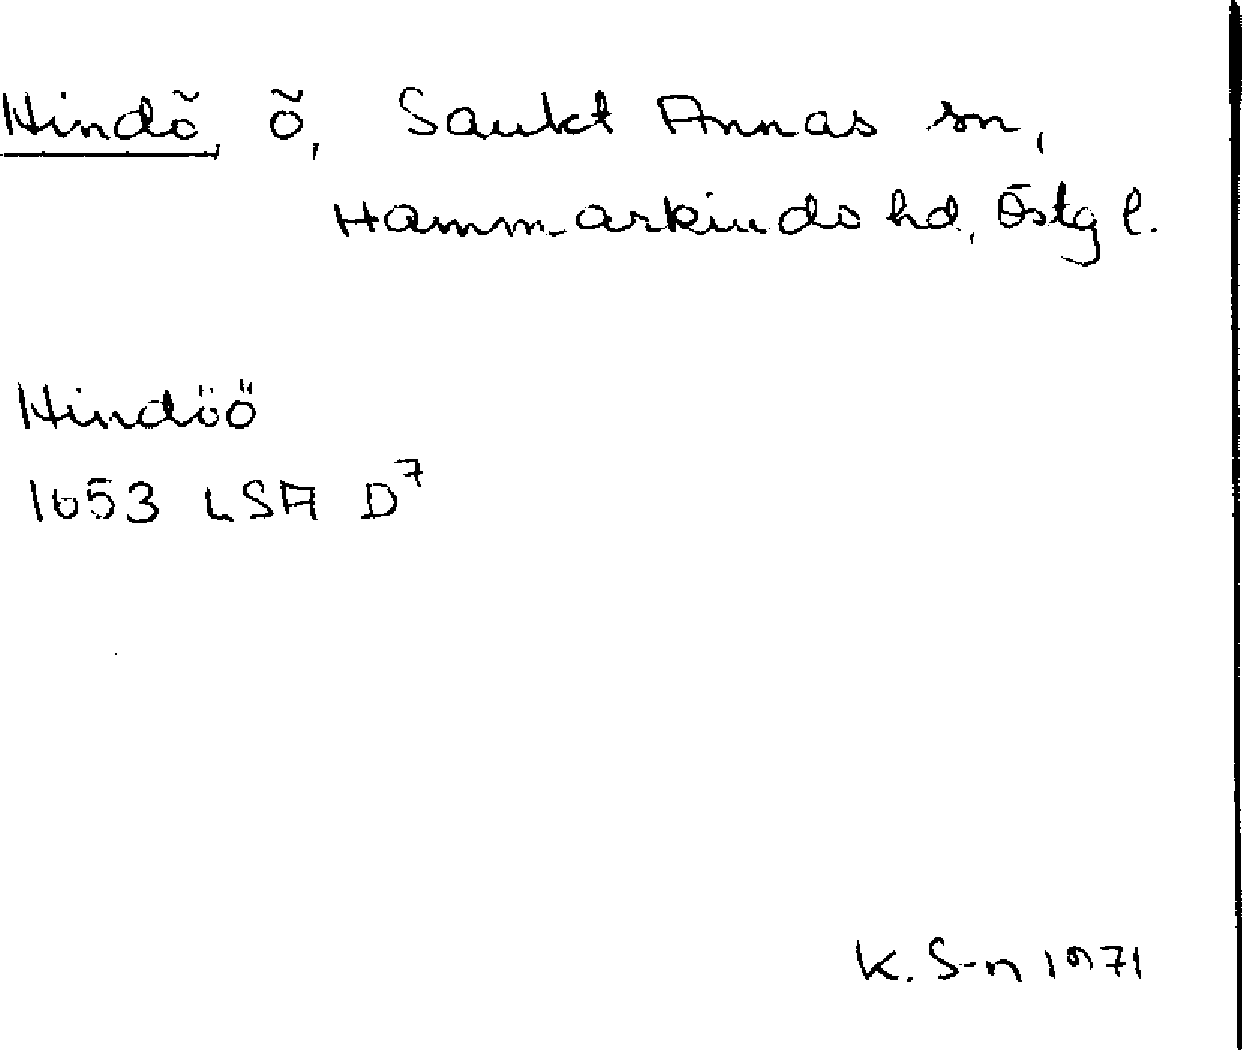 Hindö, ö, Sankt Annas sn,
Hammarkinds hd, Östgl.
Hindöö
1653 LSA D7
K. S-n 1971